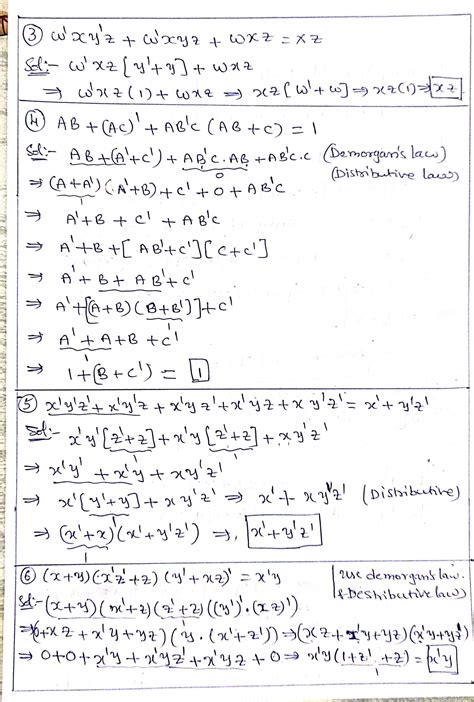 ③ w'xy'z + w'xyz + wxz = xz
Sol:- w'xz[y'+y] + wxz
⇒ w'xz(1) + wxz ⇒ xz[w'+w] ⇒ xz(1) ⇒ xz
④ AB + (AC)' + AB'C (AB + C) = 1
Sol:- AB + (A'+C') + AB'C.AB + AB'C.C (Demorgan's law)
0 (Distributive laws)
⇒ (A+A')(A'+B) + C' + 0 + AB'C
1
⇒ A'+B + C' + AB'C
⇒ A'+B+[AB'+C'][C+C']
1
⇒ A' + B + AB'+C'
⇒ A'+[(A+B)(B+B')]+C'
1
⇒ A'+A+B+C'
1
⇒ 1+(B+C') = 1
⑤ x'y'z'+x'y'z+x'yz'+x'yz+xy'z' = x'+y'z'
Sol:- x'y'[z'+z]+x'y[z'+z]+xy'z'
1 1
⇒ x'y' + x'y + xy'z'
⇒ x'[y'+y]+xy'z' ⇒ x'+xy'z' (Distributive)
1
⇒ (x'+x)(x'+y'z') ⇒ x'+y'z'
1
⑥ (x+y)(x'z'+z)(y'+xz)' = x'y
Use demorgan's law. & Destributive law)
Sol:- (x+y)(x'+z)(z'+z)((y')'.(xz)')
1
⇒(0+xz+x'y+yz)(y.(x'+z'))⇒(xz+x'y+yz)(x'y+yz')
⇒ 0+0+x'y+x'yz'+x'yz+0⇒x'y(1+z'+z)=x'y